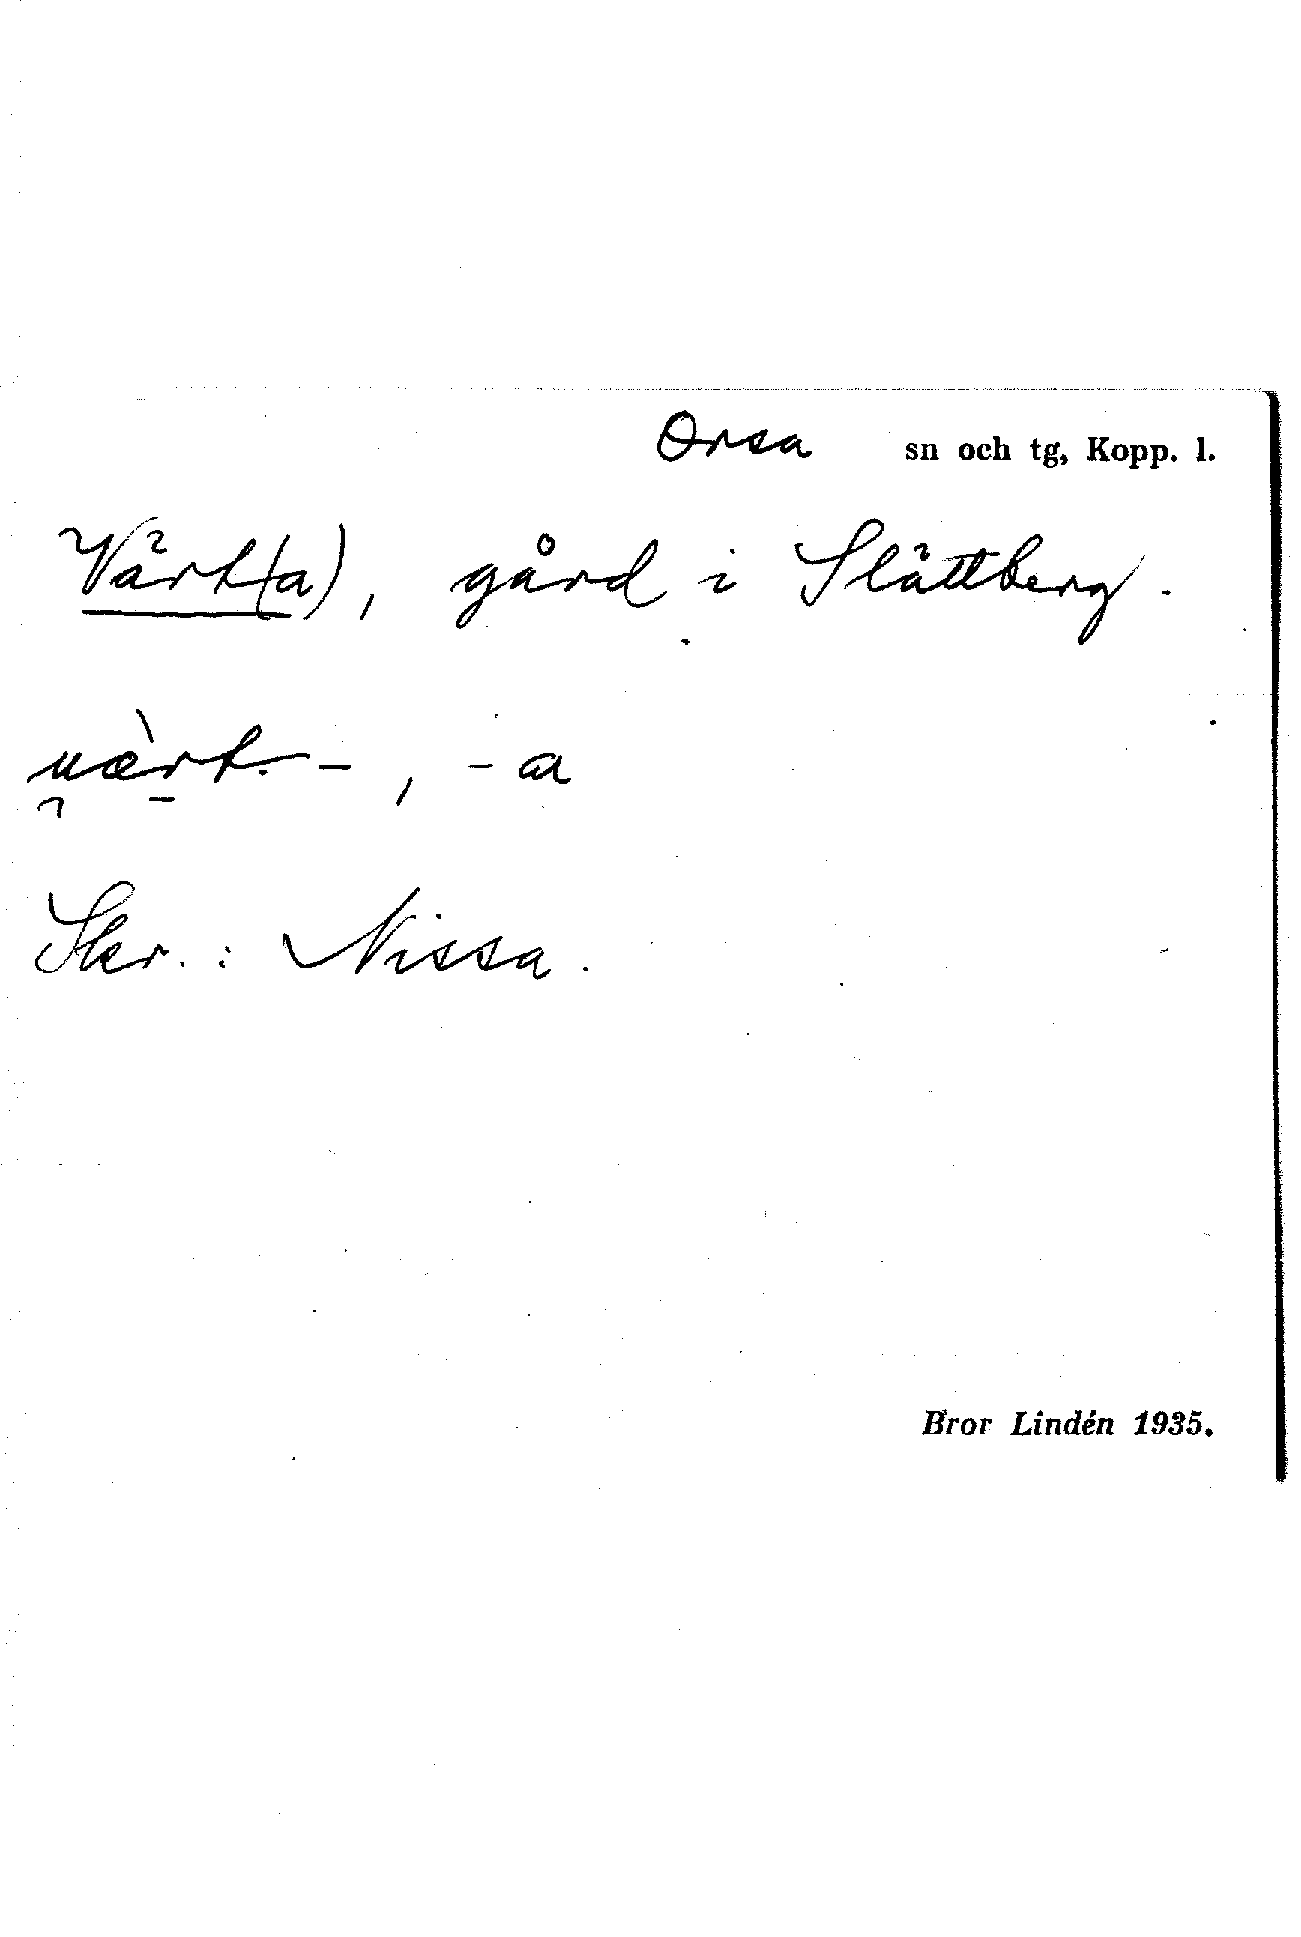 Orsa sn och tg, Kopp. l.
Värt(a), gård i Slättberg.
u̯æ̀rt. -, -a
Skr. : Nissa.
Bror Lindén 1935.